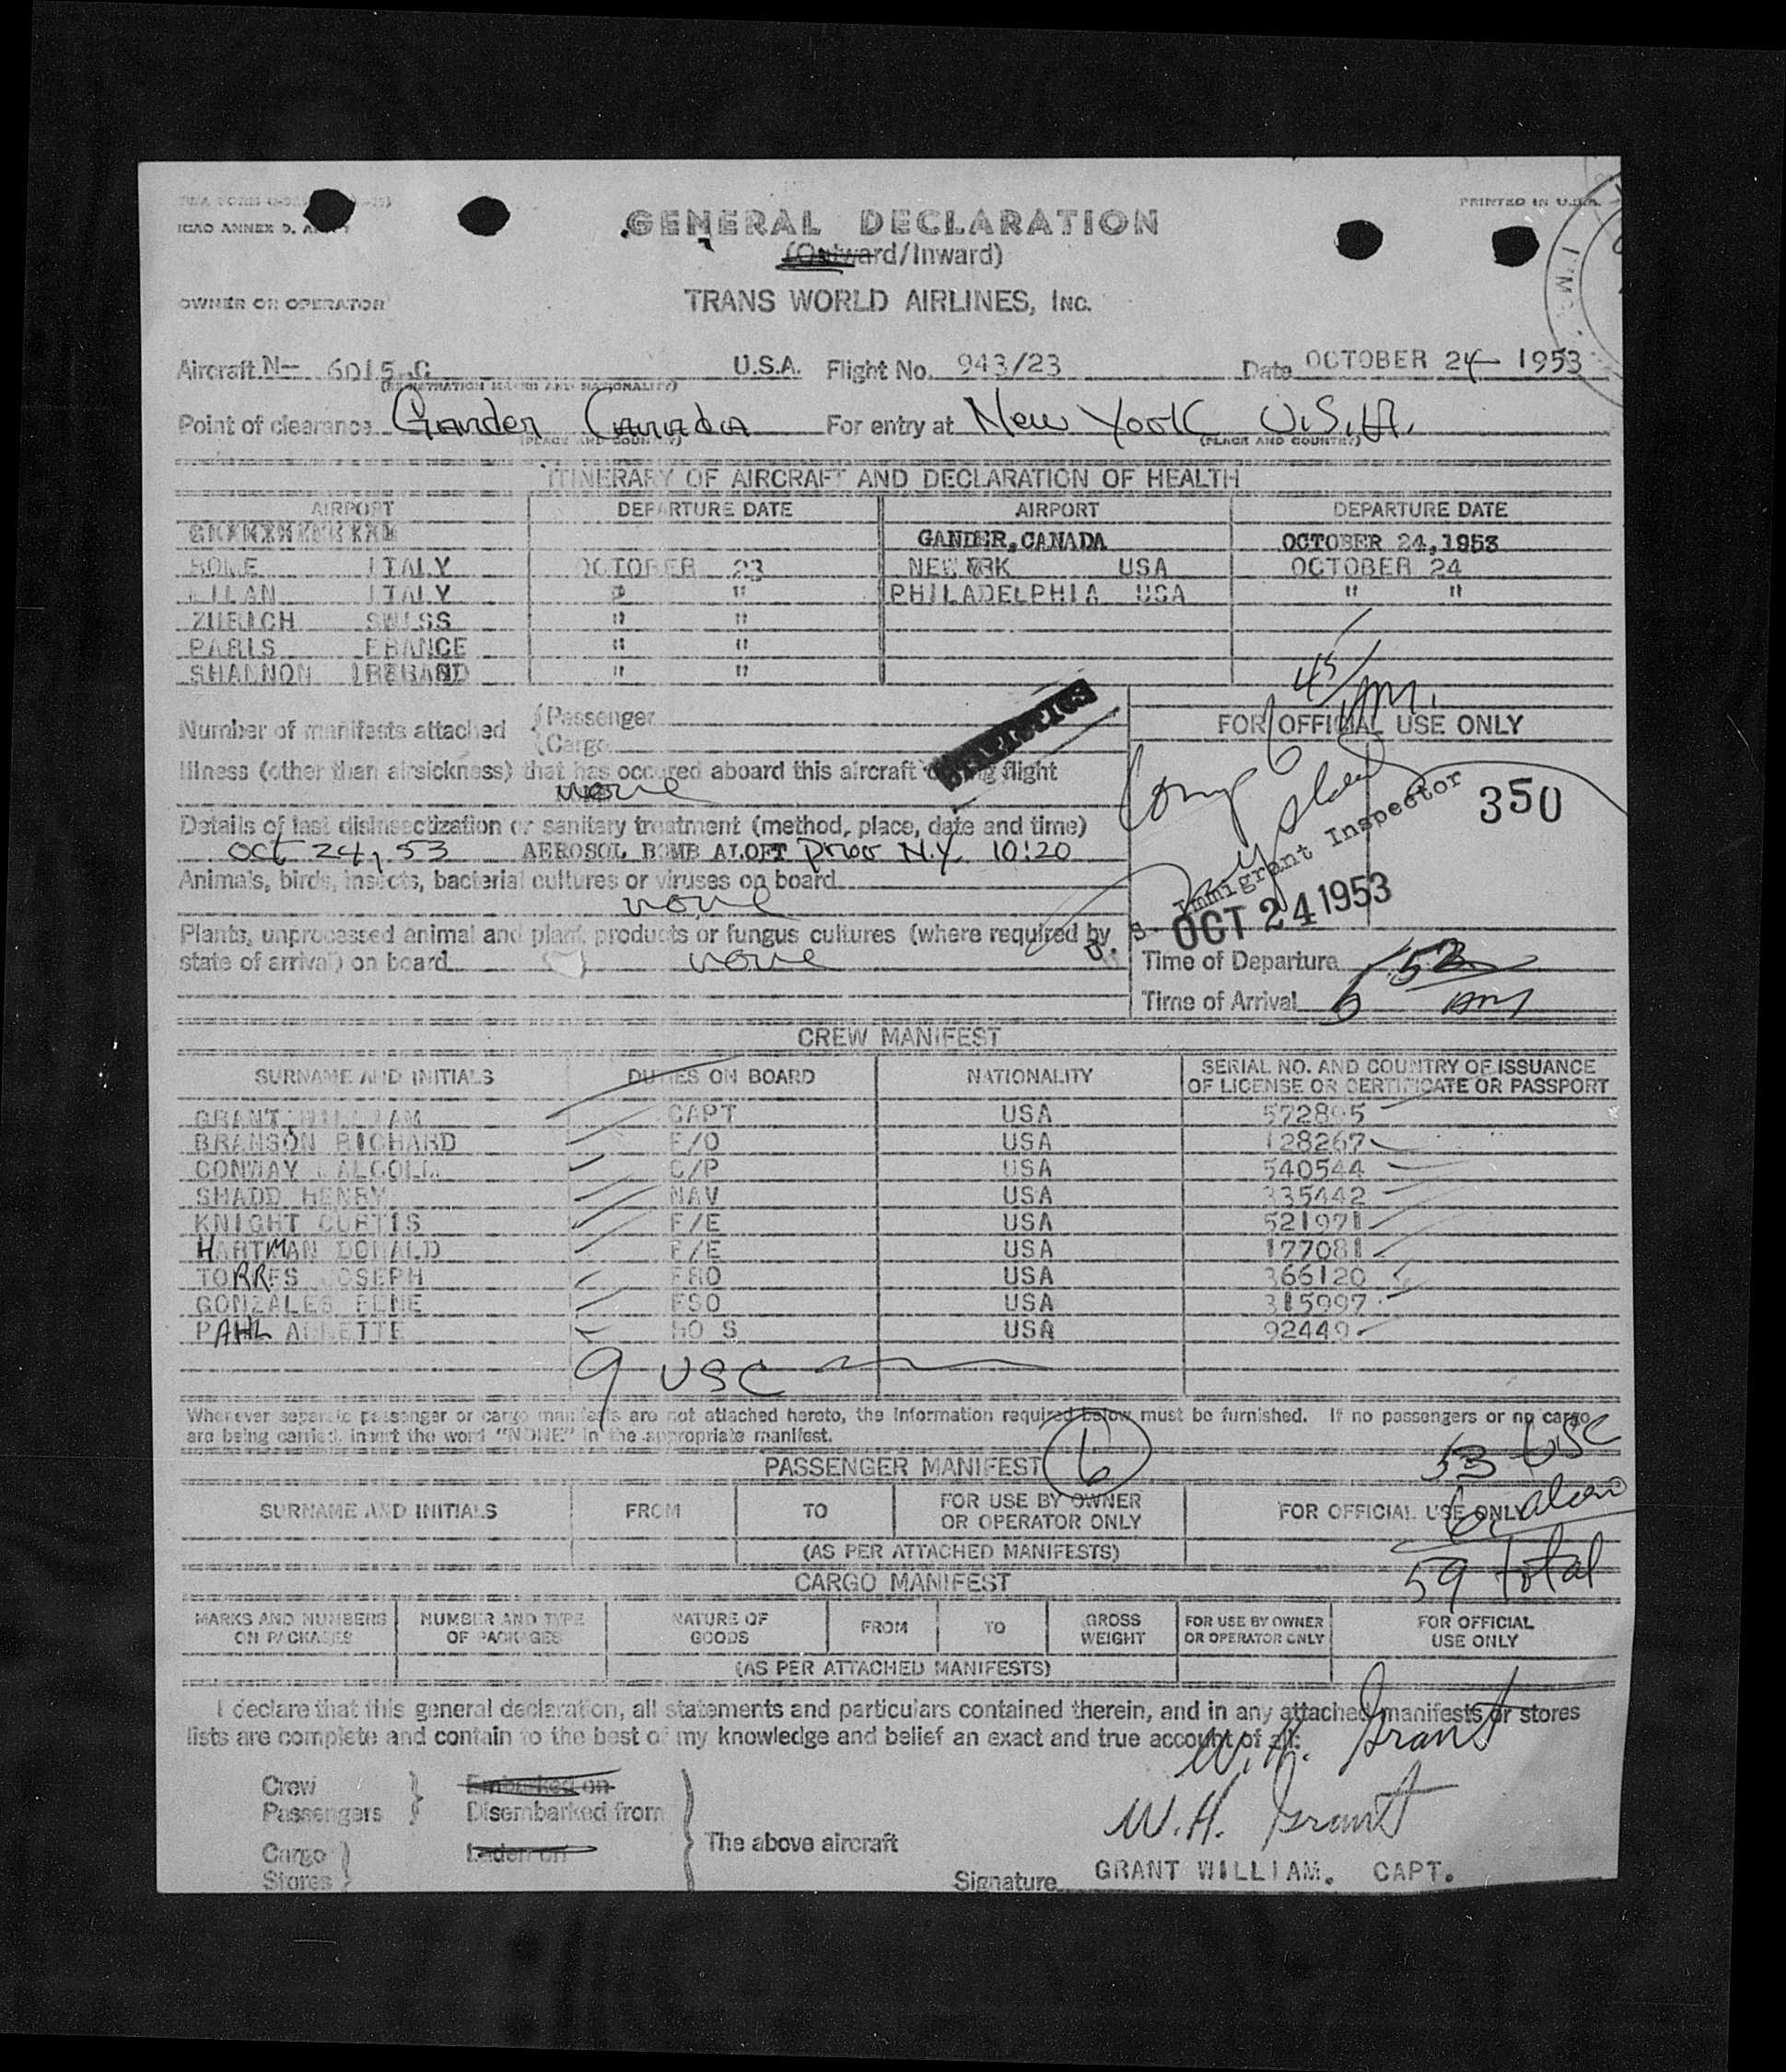 ICAO ANNEX 9, A
PRINTED IN U.S.A.
GENERAL DECLARATION
(Outward/Inward)
OWNER OR OPERATOR
TRANS WORLD AIRLINES, INC.
Aircraft N- 6015 C U.S.A. Flight No. 943/23 Date OCTOBER 24 1953
(REGISTRATION MARKS AND NATIONALITY)
Point of clearance Gander Canada For entry at New York U.S.A.
(PLACE AND COUNTRY) (PLACE AND COUNTRY)
ITINERARY OF AIRCRAFT AND DECLARATION OF HEALTH
AIRPORT DEPARTURE DATE AIRPORT DEPARTURE DATE
GANDER, CANADA OCTOBER 24, 1953
ROME ITALY OCTOBER 23 NEW YORK USA OCTOBER 24
MILAN ITALY " " PHILADELPHIA USA " "
ZURICH SWISS " "
PARIS FRANCE " "
SHANNON IRELAND " "
45
Number of manifests attached { Passenger
{ Cargo
STATISTICS
FOR OFFICIAL USE ONLY
Illness (other than airsickness) that has occured aboard this aircraft during flight
none
350
Details of last disinsectization or sanitary treatment (method, place, date and time)
Oct 24, 53 AEROSOL BOMB ALOFT prior N.Y. 10:20
Animals, birds, insects, bacterial cultures or viruses on board
none
U. S. Immigrant Inspector
OCT 24 1953
Plants, unprocessed animal and plant products or fungus cultures (where required by
state of arrival) on board none
Time of Departure
Time of Arrival 6 52 AM
CREW MANIFEST
SURNAME AND INITIALS DUTIES ON BOARD NATIONALITY SERIAL NO. AND COUNTRY OF ISSUANCE
OF LICENSE OR CERTIFICATE OR PASSPORT
GRANT WILLIAM CAPT USA 572895
BRANSON RICHARD F/O USA 128267
CONWAY MALCOLM C/P USA 540544
SHADD HENRY NAV USA 335442
KNIGHT CURTIS F/E USA 521971
HARTMAN DONALD F/E USA 177081
TORRES JOSEPH FRO USA 366120
GONZALES RENE FSO USA 315997
PAHL ANNETTE HO S USA 92449
9 USC
Wherever separate passenger or cargo manifests are not attached hereto, the information required below must be furnished. If no passengers or no cargo
are being carried, insert the word "NONE" in the appropriate manifest.
53 USC
PASSENGER MANIFEST 6
SURNAME AND INITIALS FROM TO FOR USE BY OWNER
OR OPERATOR ONLY FOR OFFICIAL USE ONLY
6 alien
(AS PER ATTACHED MANIFESTS)
59 total
CARGO MANIFEST
MARKS AND NUMBERS
ON PACKAGES NUMBER AND TYPE
OF PACKAGES NATURE OF
GOODS FROM TO GROSS
WEIGHT FOR USE BY OWNER
OR OPERATOR ONLY FOR OFFICIAL
USE ONLY
(AS PER ATTACHED MANIFESTS)
I declare that this general declaration, all statements and particulars contained therein, and in any attached manifests or stores
lists are complete and contain to the best of my knowledge and belief an exact and true account of all:
W.H. Grant
Crew
Passengers } Embarked on
Disembarked from
W.H. Grant
Cargo
Stores } Laden on
The above aircraft
Signature GRANT WILLIAM. CAPT.